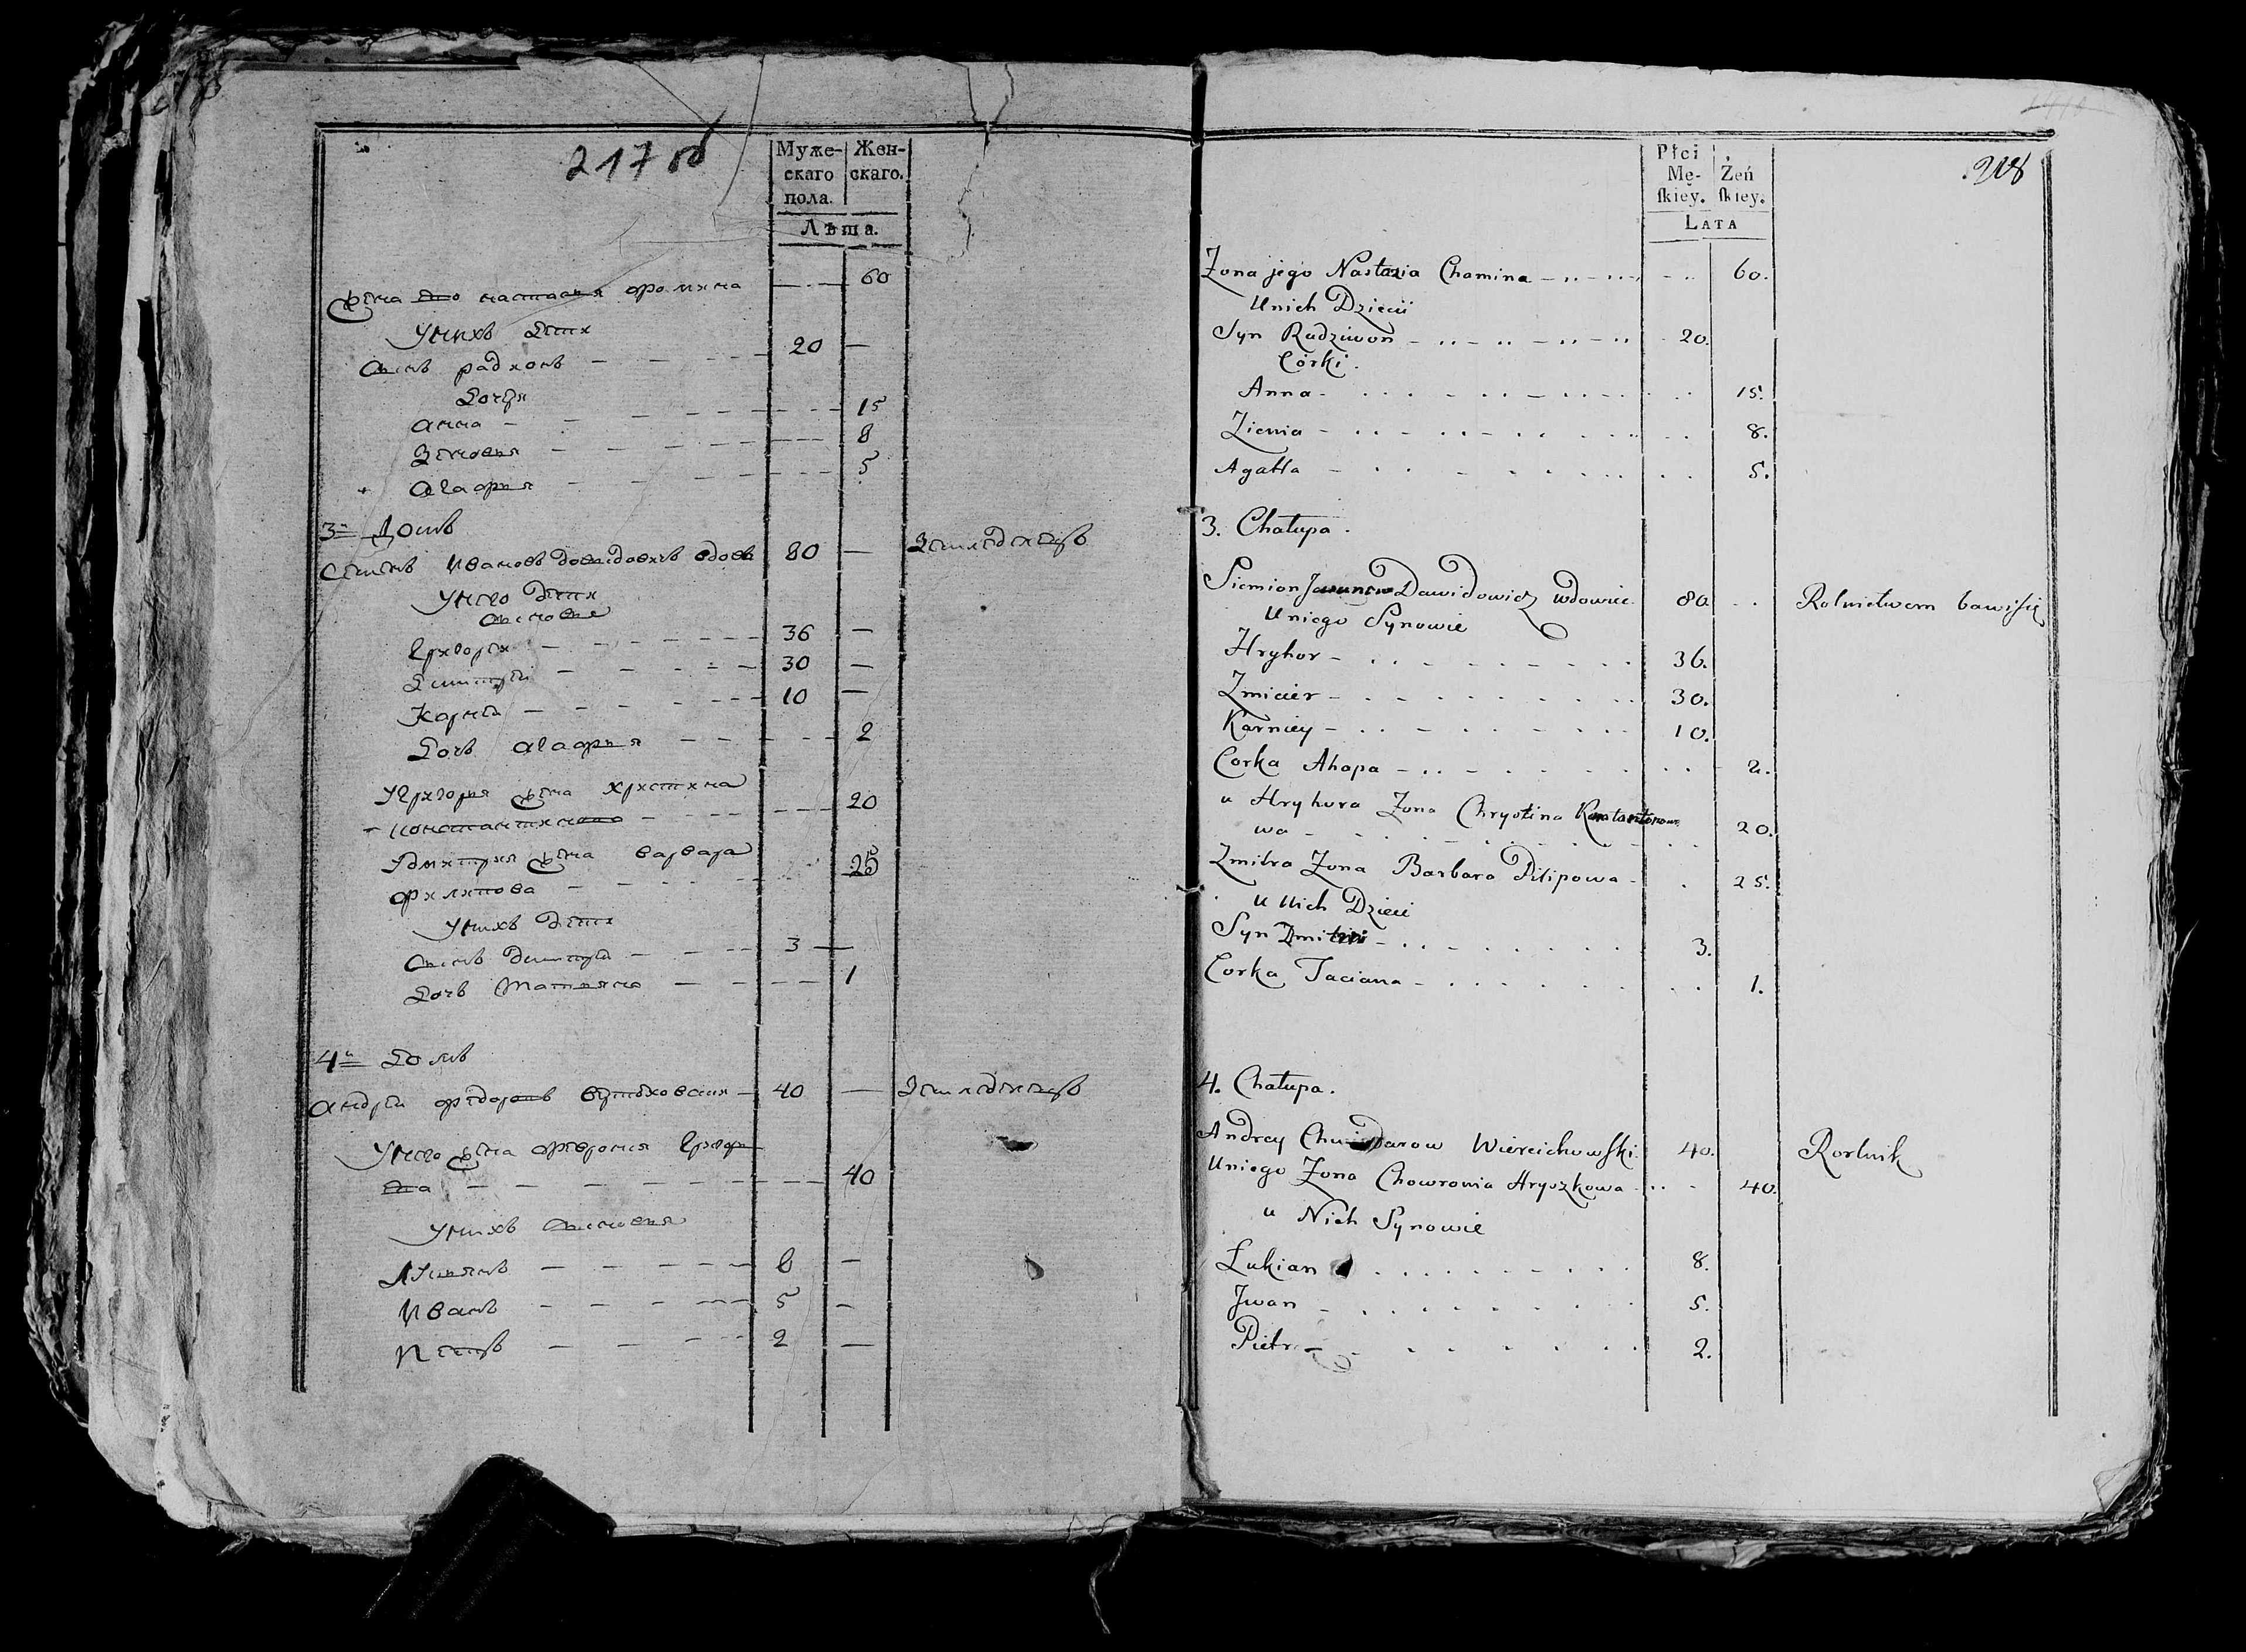 217 об
Муже-
скаго
пола.
Жен-
скаго.
Лѣта.
жена его настасья фомина — 60
у нихъ дети
сынъ радионъ — 20 —
дочери
анна — 15
зеновья — 8
агафья — 5
3й Домъ
семенъ Ивановъ давидовичъ вдовъ 80 — земледелецъ
у него дети
сыновья
григорей — 36 —
дмитрей — 30 —
Карней — 10 —
дочь агафья — 2
у григорья жена христина
константинова — 20
у дмитрия жена варвара
филипова — 25
у нихъ дети
сынъ дмитрей — 3 —
дочь татьяна — 1
4й домъ
андрей федоровъ — 40 — земледелецъ
у него жена феврония григорь
ева — 40
у нихъ сыновья
лукьянъ — 8 —
Иванъ — 5 —
Петръ — 2 —
Płci
Mę-
ſkiey.
Żeń
ſkiey.
LATA
218
Zona jego Nastazia Chomina 60.
U nich Dzieci
Syn Radziwon 20.
Córki.
Anna 15.
Zienia 8.
Agatta 5.
3. Chałupa.
Siemion Dawidowicz wdowiec 80. Rolnictwem bawi się
U niego Synowie
Hryhor 36.
Zmicier 30.
Karniey 10.
Corka Ahapa 2.
u Hryhora Zona Chrystina Konstantono
wa 20.
Zmitra Zona Barbara Pilipowa 25.
U Nich Dzieci
Syn Dmitri 3.
Corka Taciana 1.
4. Chałupa.
Andrey Wiereichowſki 40. Rorlnik
U niego Zona Chowronia Hryszkowa 40.
u Nich Synowie
Łukian 8.
Jwan 5.
Pietr 2.